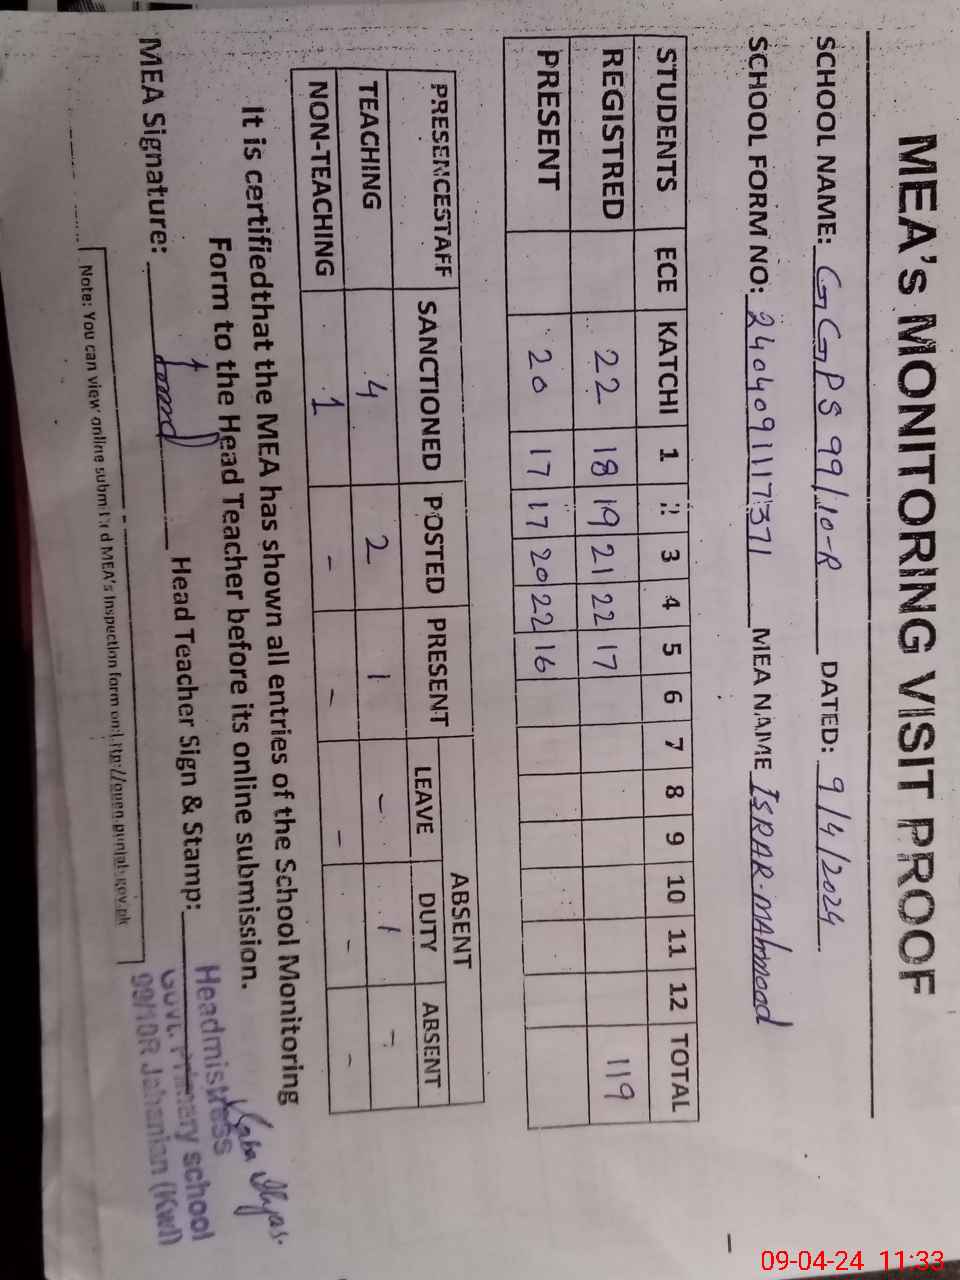 MEA's MONITORING VISIT PROOF
SCHOOL NAME: GGPS 99/10-R DATED: 9/4/2024
SCHOOL FORM NO: 2404091117371 MEA NAME ISRAR.MAhmood
STUDENTS ECE KATCHI 1 2 3 4 5 6 7 8 9 10 11 12 TOTAL
REGISTRED 22 18 19 21 22 17 119
PRESENT 20 17 17 20 22 16
PRESENCESTAFF SANCTIONED POSTED PRESENT ABSENT
LEAVE DUTY ABSENT
TEACHING 4 2 1 - 1 -
NON-TEACHING 1 - - - - -
It is certifiedthat the MEA has shown all entries of the School Monitoring
Form to the Head Teacher before its online submission.
MEA Signature: Head Teacher Sign & Stamp:
Saba Ilyas.
Headmistress
Govt. Primary school
99/10R Jahanian (Kwl)
Note: You can view online submitted MEA's Inspection form on
09-04-24 11:33